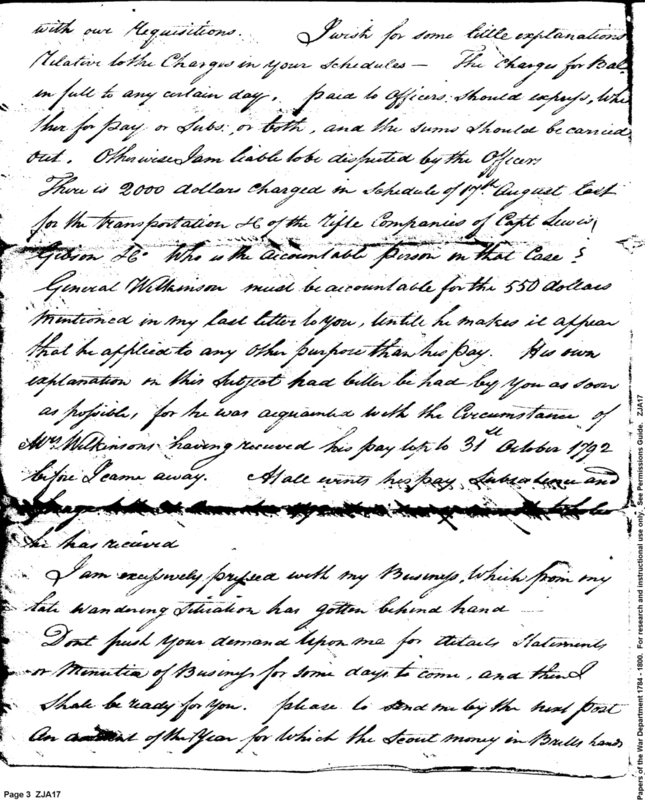 with our requisitions. I wish for some little explanations
Relative to the Charges in your Schedules — The charges for Bal.
in full to any certain day, paid to Officers, should express, Whe
ther for pay or Subs. or both, and the sums should be carried
out. Otherwise I am liable to be disputed by the Officers
There is 2000 dollars charged in Schedule of 17th August last
for the transportation &c of the Rifle Companies of Capt Lewis,
Gibson &c. Who is the accountable person in that Case?
General Wilkinson must be accountable for the 550 dollars
mentioned in my last letter to you, Untile he makes it appear
that he applied to any other purpose than his pay. His own
explanation on this Subject had better be had by you as soon
as possible, for he was acquainted with the Circumstance of
Mrs. Wilkinsons having received his pay up to 31st October 1792
before I came away. At all events his pay, Subsistence and
he has recieved
I am excessively pressed with my Business, Which from my
late Wandering Situation has gotten behind hand —
Dont push your demand Upon me for details Statements
or Minutia of Business for some days to come, and then I
shall be ready for You. please to send me by the next post
An of the Year for which the Scout money in Britts hands
Page 3 ZJA17
Papers of the War Department 1784 - 1800. For research and instructional use only. See Permissions Guide. ZJA17